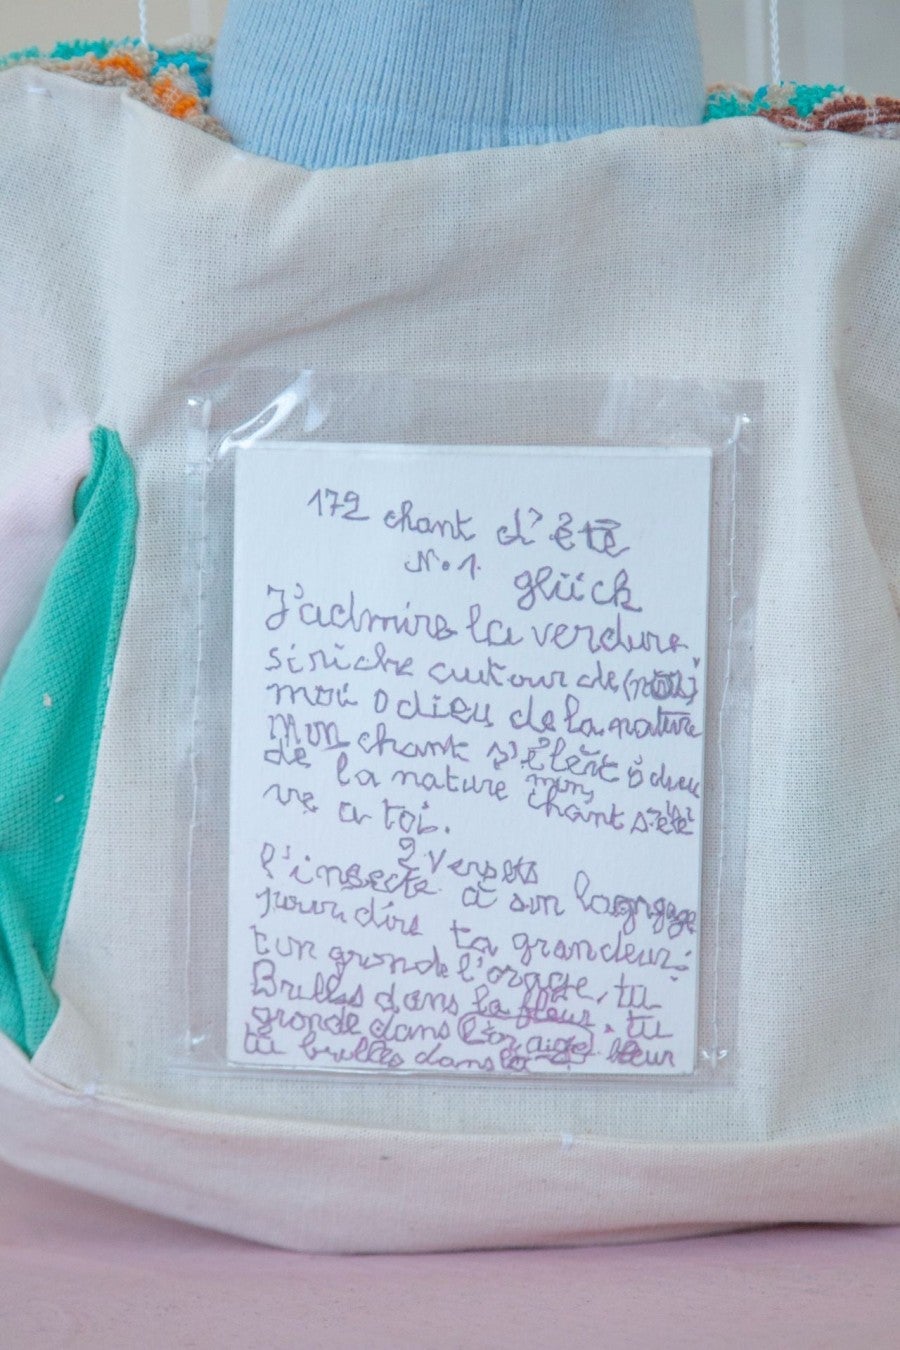 172 chant d'été
N° 1. glück
J'admire la verdure
si riche autour de
moi O dieu de la nature
Mon chant s'élève ô dieu
de la nature mon
chant s'élè
ve a toi.
2 Versets
l'insecte à son langage
pour dire ta grandeur;
ton gronde l'orage, tu
Brilles dans la fleur, tu
gronde dans l'oraige
tu brilles dans la fleur